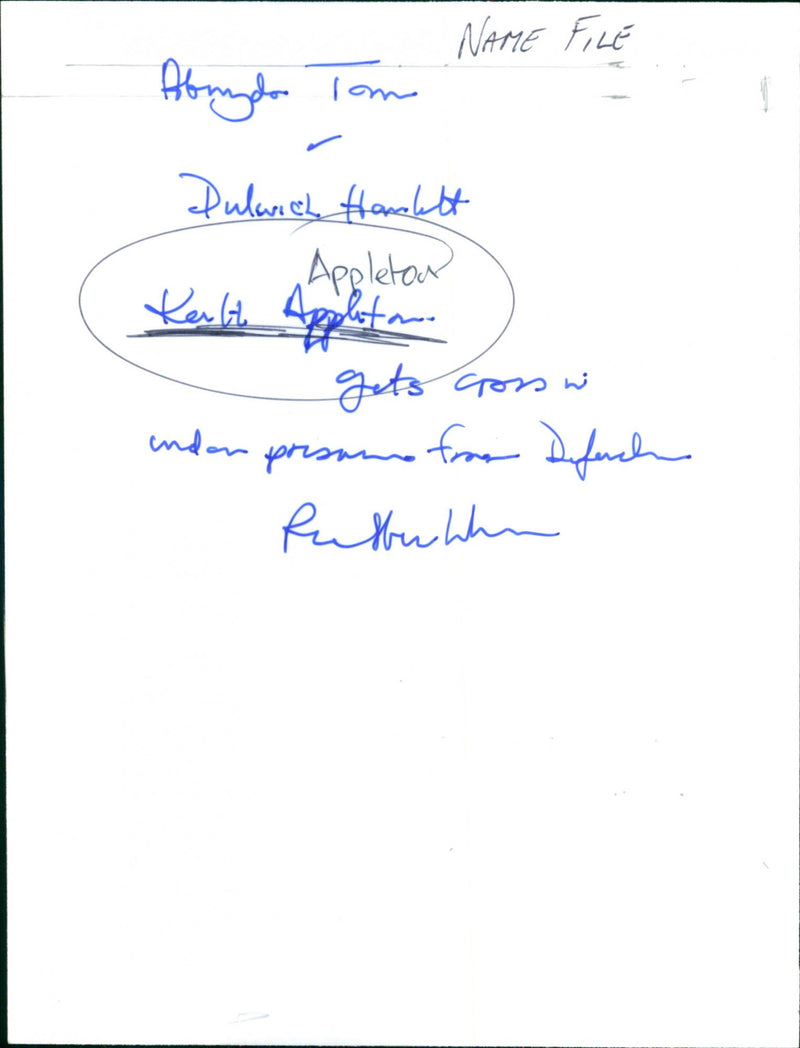 NAME FILE
Abingdon Town
v
Dulwich Hamlet
Appleton
Keith Appleton
gets cross in
under pressure from Defender